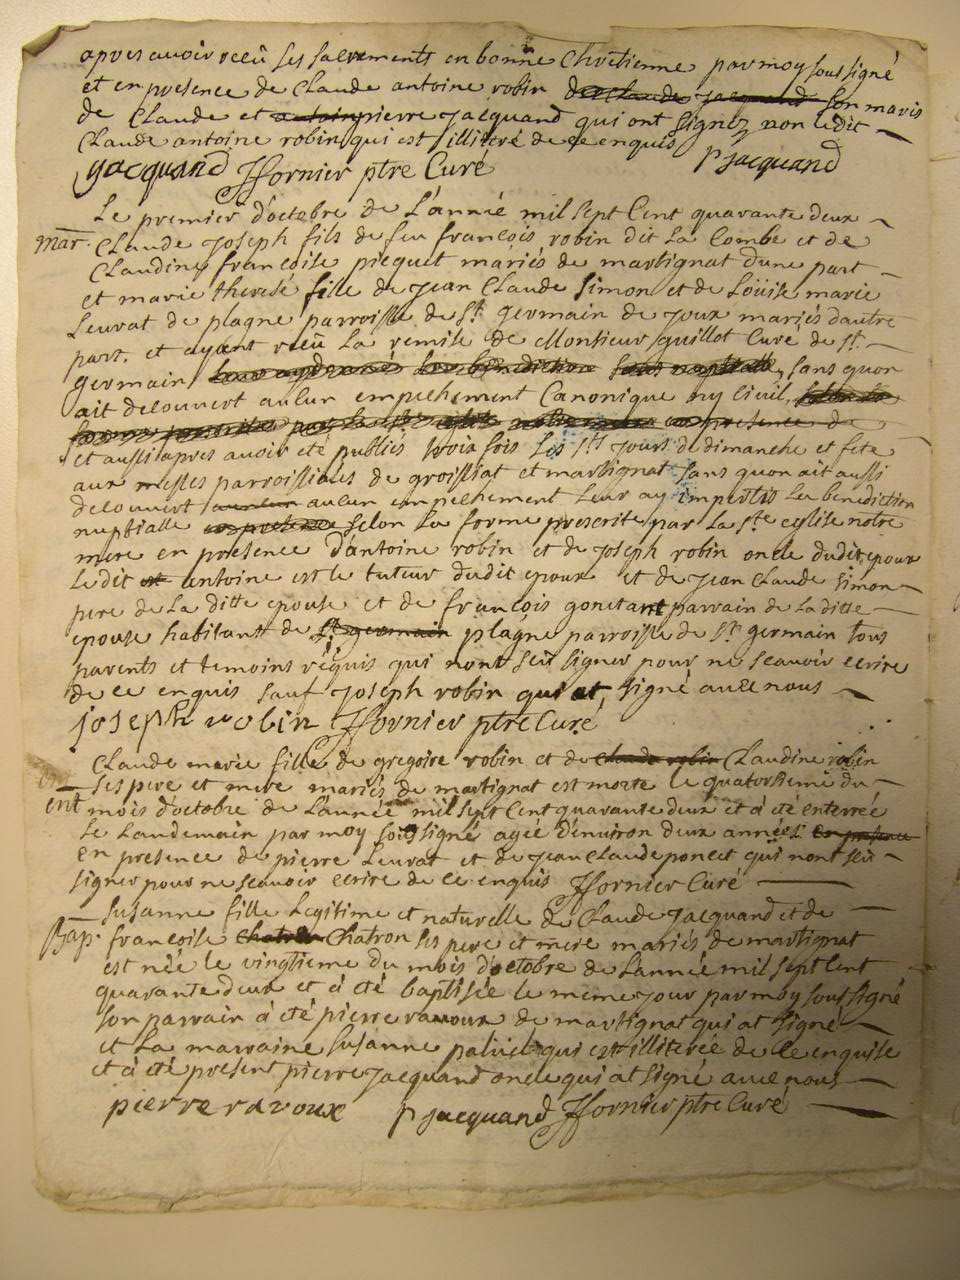 apres avoir receû ses sacrements en bonne Chretienne par moy soussigné
et en presence de Claude antoine robin de Claude Jacquand son maris
de Claude et antoin pierre jacquand qui ont signez non ledit
Claude antoine robin qui est illiteré de ce enquis
gacquand Fornier ptre Curé pjacquand
Le premier d'octobre de L'année mil sept Cent quarante deux
mar. Claude Joseph fils de feu francois robin dit la Combe et de
Claudine francoise picquet mariés de martignat dune part
et marie therese fille de Jean Claude Simon et de Loüise marie
Leuvat de plagne parroisse de St. germain de Joux mariés dautre
part. et ayant receu la remise de Monsieur guillot Curé de St.
germain sans quon
ait decouvert aucun empechement Canonique ny Civil,
en presence de
et aussi apres avoir été publiés trois fois Les Sts Jours de dimanche et fete
aux messes parroissiales de groissiat et martignat sans quon ait aussi
decouvert aucun aucun empechement Leur ay impertis La benediction
nuptialle en presence selon La forme prescrite par La Ste eglise notre
mere en presence d'antoine robin et de Joseph robin oncle dudit epoux
Ledit est antoine est le tuteur dudit epoux et de Jean Claude Simon
pere de La ditte epouse et de francois gonetant parrain de La ditte
epouse habitant de St germain plagne parroisse de St germain tous
parents et temoins requis qui nont seü signer pour ne scavoir ecrire
de ce enquis sauf Joseph robin qui at signé avec nous
joseph robin Fornier ptre Curé
Claude marie fille de gregoire robin et de Claude robin Claudine robin
ses pere et mere mariés de martignat est morte le quatorsieme du
ent mois d'octobre de L'année mil sept Cent quarante deux et à été enterrée
Le Landemain par moy soussigné agée d'environ deux années en presence
en presence de pierre Leuvat et de Jean Claude poncet qui nont seu
signer pour ne scavoir ecrire de ce enquis Fornier Curé
Susanne fille Legitime et naturelle de Claude Jacquand et de
Bap. francoise Chatron Chatron ses pere et mere mariés de martignat
est née le vingtieme du mois d'octobre de L'année mil sept Cent
quarante deux et à été baptisée le meme jour par moy soussigné
son parrain à été pierre ravoux de martignat qui at signé
et La marraine Susanne qui est illiterée de ce enquise
et à été present pierre Jacquand oncle qui at signé avec nous
pierre ravoux pjacquand Fornier ptre Curé